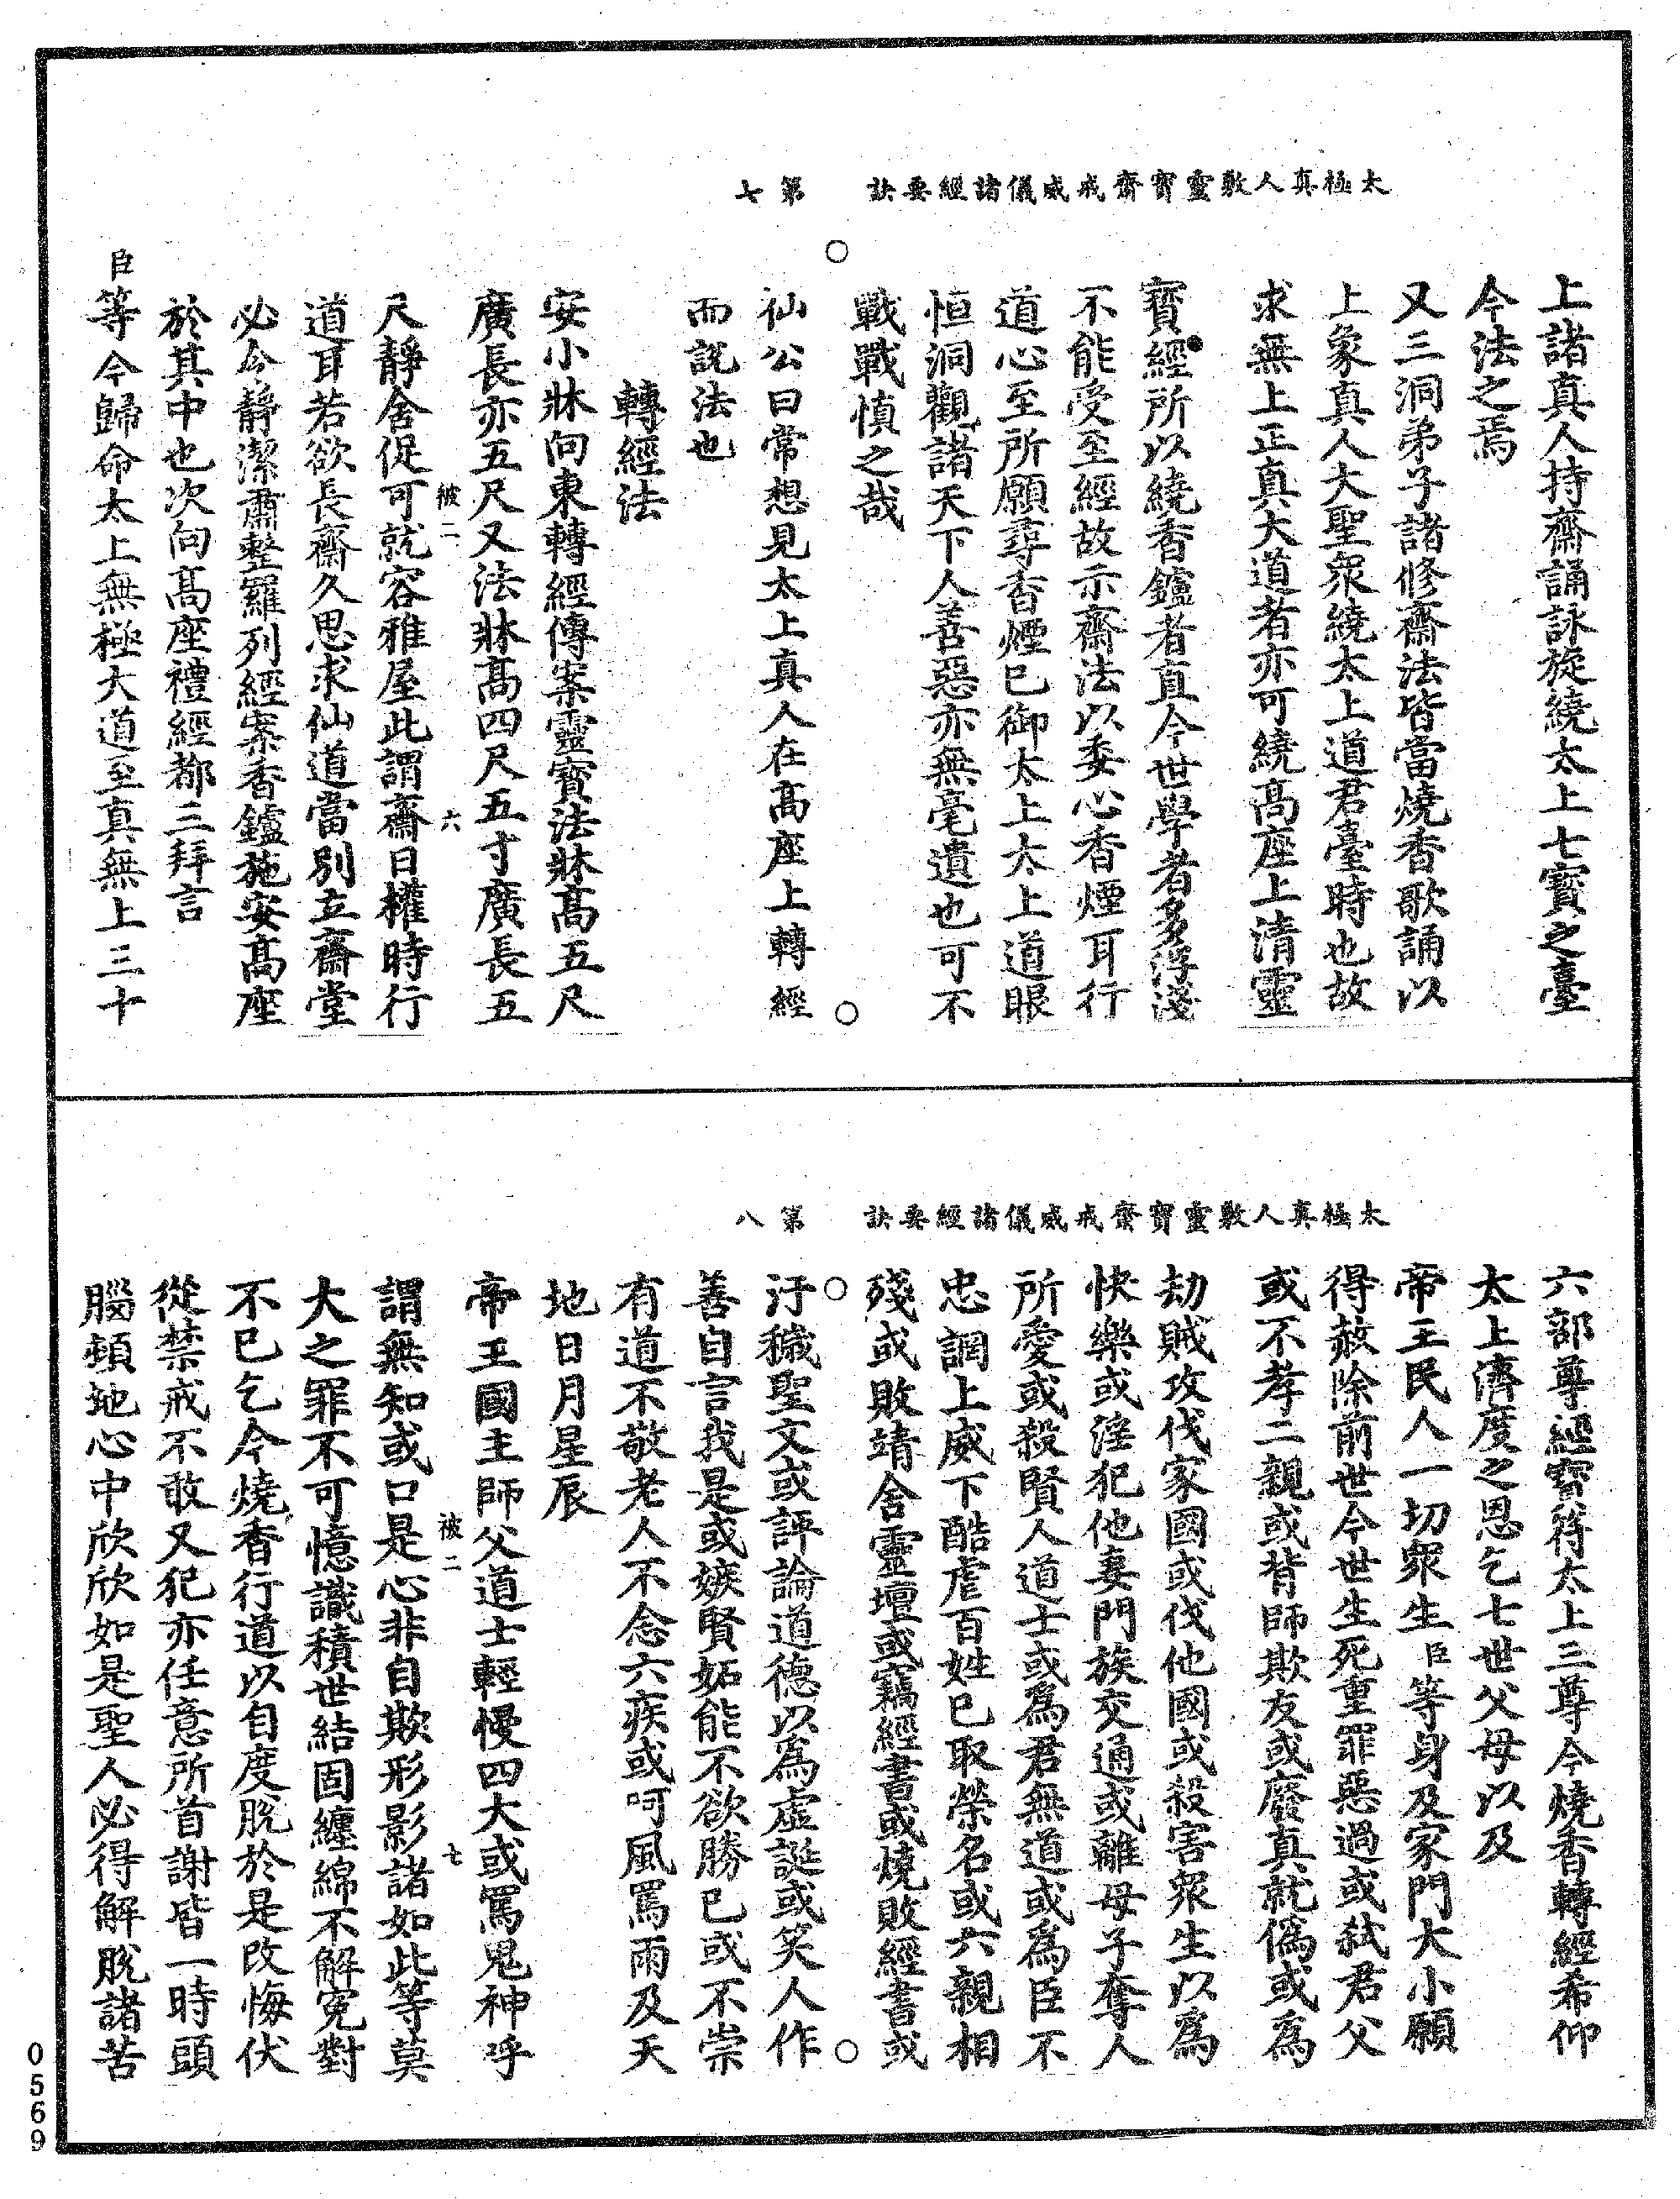 太極真人敷靈寶齋戒威儀諸經要訣　第七
上諸真人持齋誦詠旋繞太上七寶之臺
今法之焉
又三洞弟子諸修齋法皆當燒香歌誦以
上象真人大聖眾繞太上道君臺時也故
求無上正真大道者亦可繞高座上清靈
寶經所以繞香鑪者直今世學者多浮淺
不能受至經故示齋法以委心香煙耳行
道心至所願尋香煙已御太上太上道眼
恒洞觀諸天下人善惡亦無毫遺也可不
戰戰慎之哉
仙公曰常想見太上真人在高座上轉經
而說法也
轉經法
安小牀向東轉經傳案靈寶法牀高五尺
廣長亦五尺又法牀高四尺五寸廣長五
被二　六
尺靜舍促可就容雅屋此謂齋日權時行
道耳若欲長齋久思求仙道當別立齋堂
必令靜潔肅整羅列經案香鑪施安高座
於其中也次向高座禮經都三拜言
臣等今歸命太上無極大道至真無上三十
太極真人敷靈寶齋戒威儀諸經要訣　第八
六部尊經寶符太上三尊今燒香轉經希仰
太上濟度之恩乞七世父母以及
帝王民人一切眾生臣等身及家門大小願
得赦除前世今世生死重罪惡過或弒君父
或不孝二親或背師欺友或廢真就偽或為
劫賊攻伐家國或伐他國或殺害眾生以為
快樂或淫犯他妻門族交通或離母子奪人
所愛或殺賢人道士或為君無道或為臣不
忠調上威下酷虐百姓已取榮名或六親相
殘或敗靖舍靈壇或竊經書或燒敗經書或
汙穢聖文或評論道德以為虛誕或笑人作
善自言我是或嫉賢妬能不欲勝已或不崇
有道不敬老人不念六疾或呵風罵雨及天
地日月星辰
帝王國主師父道士輕慢四大或罵鬼神呼
被二　七
謂無知或口是心非自欺形影諸如此等莫
大之罪不可憶識積世結固纏綿不解冤對
不已乞今燒香行道以自度脫於是改悔伏
從禁戒不敢又犯亦任意所首謝皆一時頭
腦頓地心中欣欣如是聖人必得解脫諸苦
0569